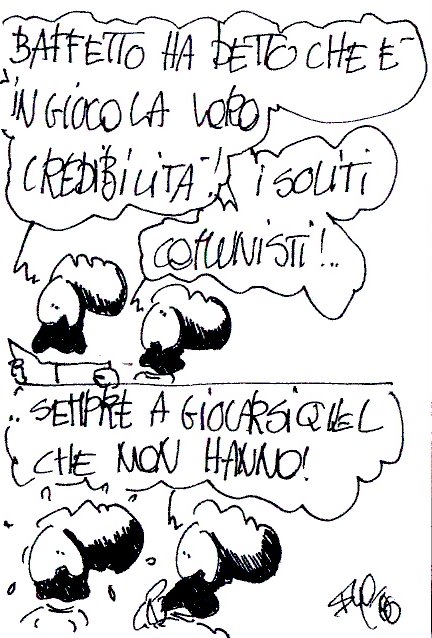 BAFFETTO HA DETTO CHE E'
IN GIOCO LA LORO
CREDIBILITA'!
I SOLITI
COMUNISTI!..
..SEMPRE A GIOCARSI QUEL
CHE NON HANNO!